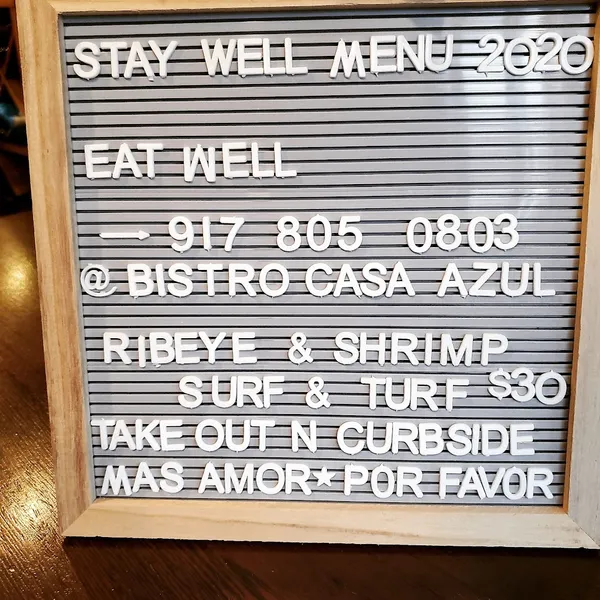 STAY WELL MENU 2020
EAT WELL
→ 917 805 0803
@ BISTRO CASA AZUL
RIBEYE & SHRIMP
SURF & TURF $30
TAKE OUT N CURBSIDE
MAS AMOR★ POR FAVOR